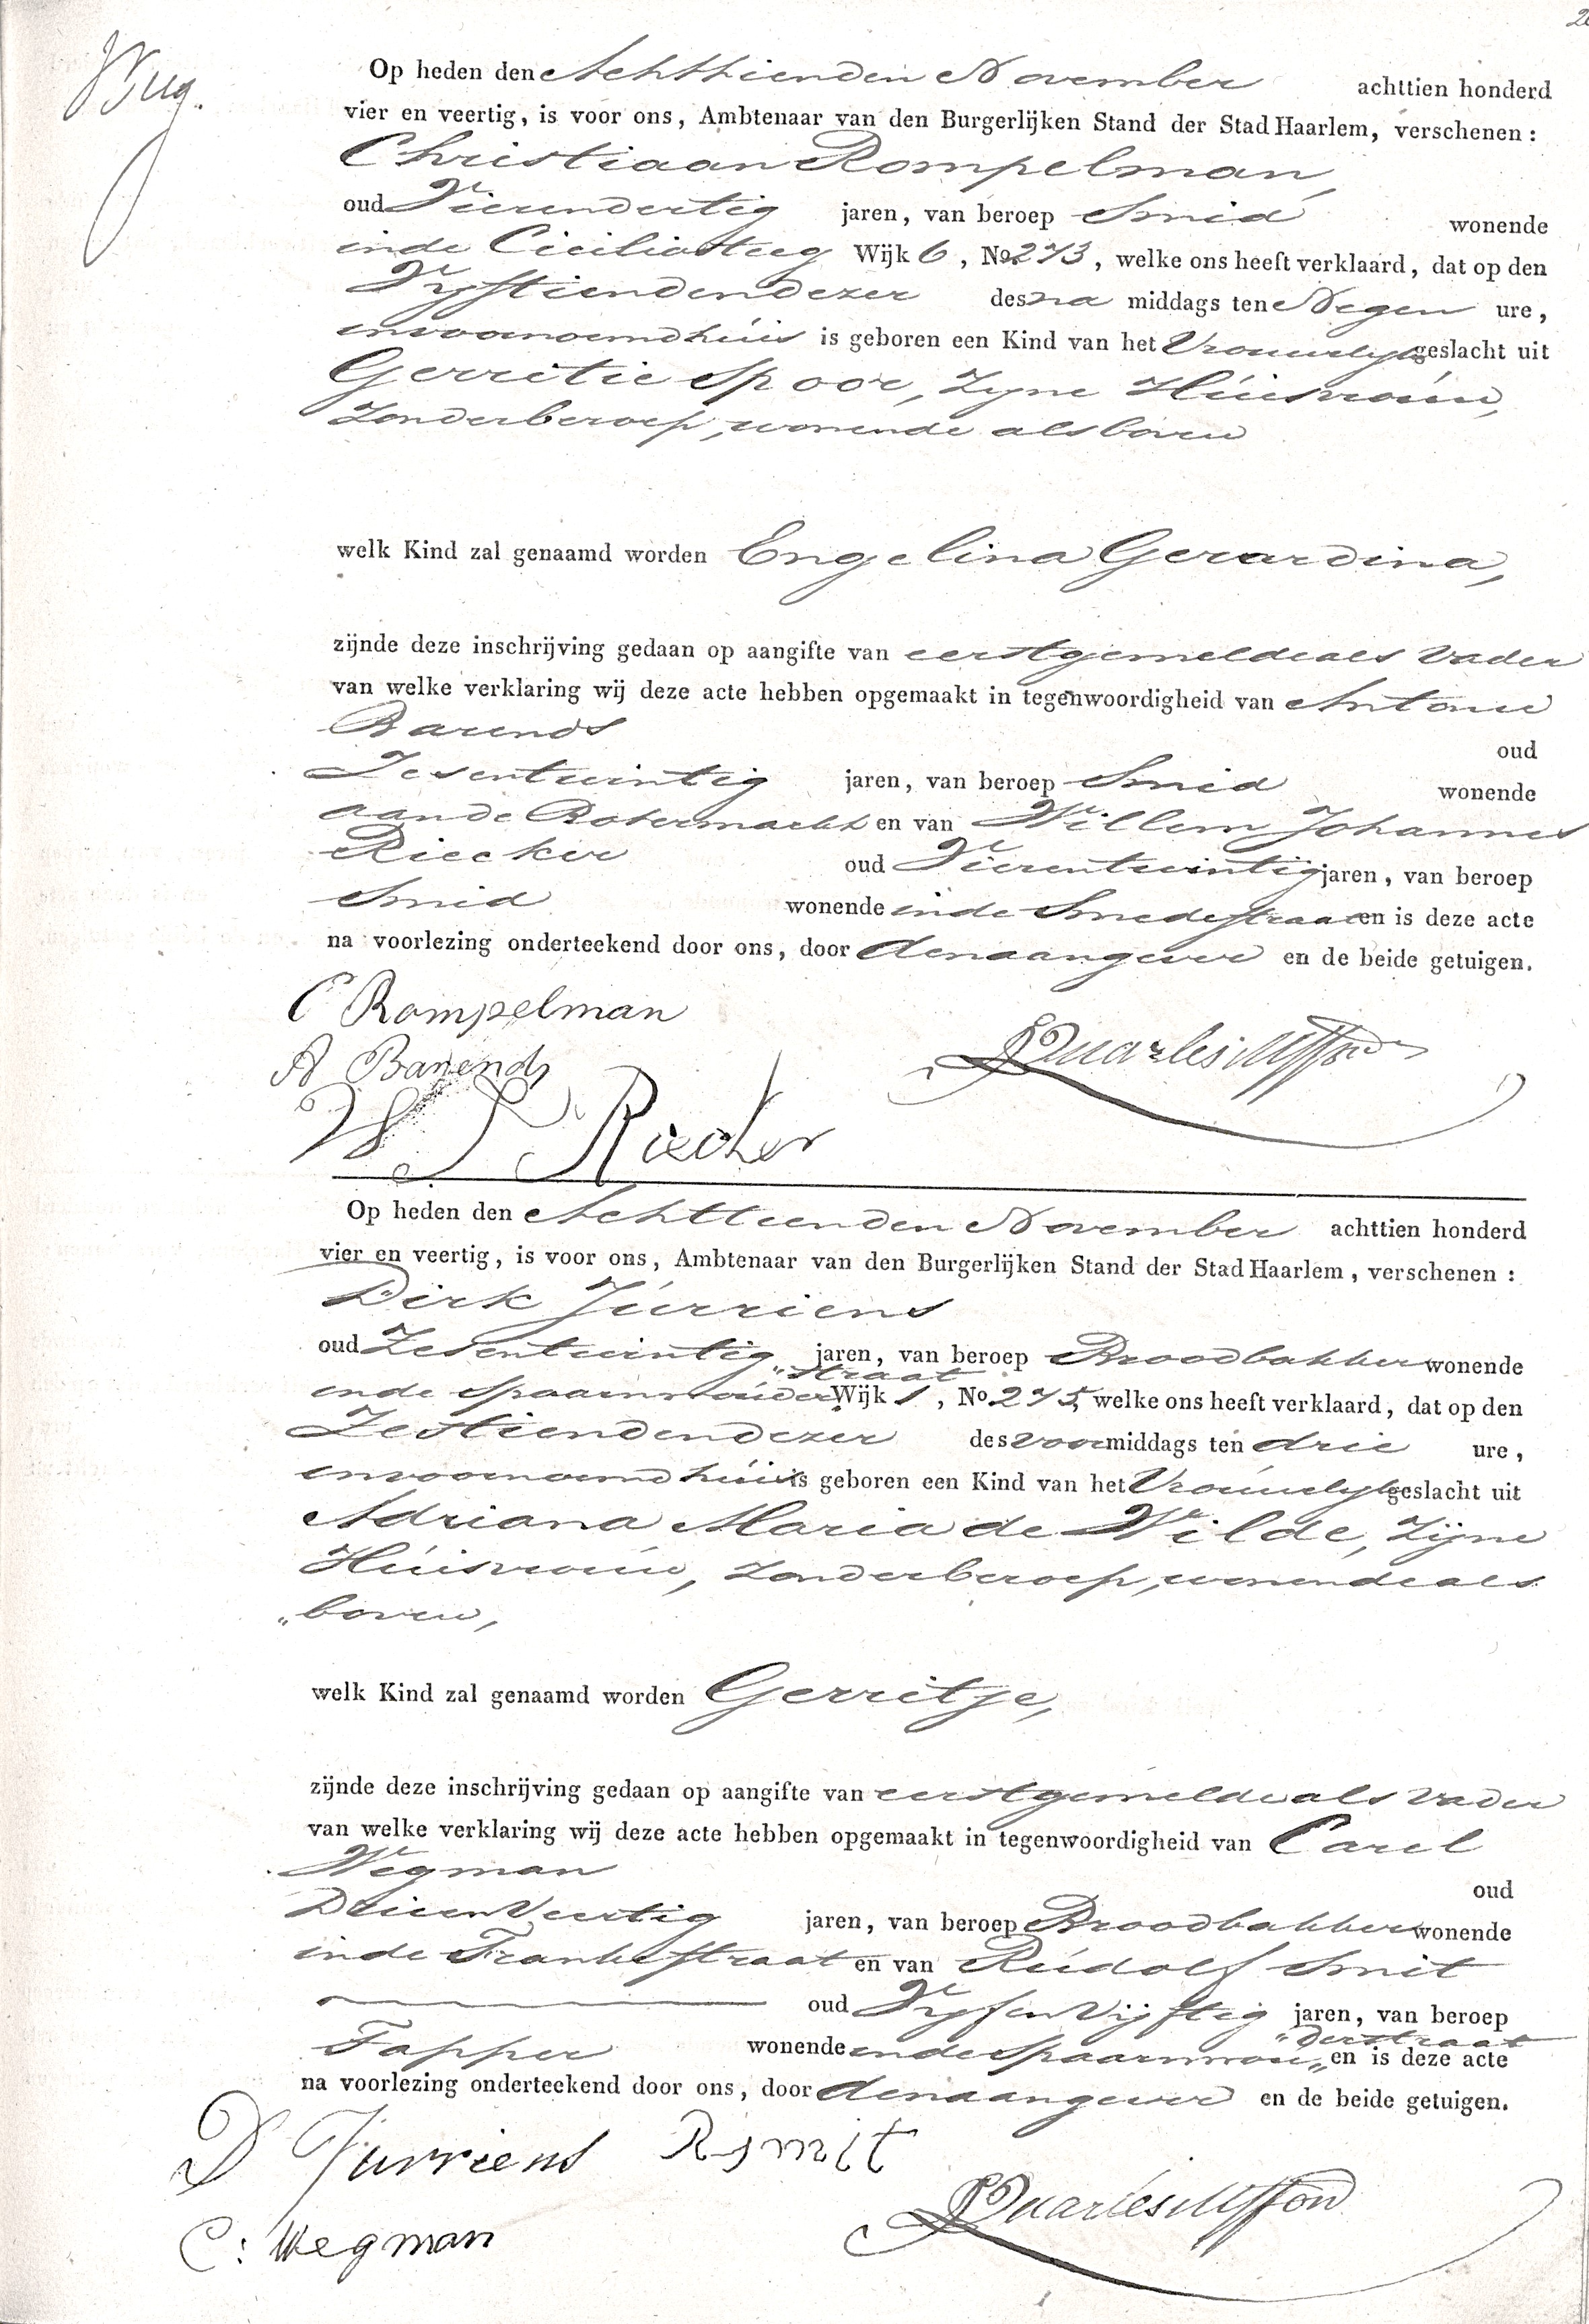 Op heden den Achttienden November achttien honderd
vier en veertig, is voor ons, Ambtenaar van den Burgerlijken Stand der Stad Haarlem, verschenen:
Christiaan Rompelman,
oud Vierendertig jaren, van beroep Smid wonende
inde Ciciliasteeg Wijk 6, No. 273, welke ons heeft verklaard, dat op den
Vyftienden dezer des na middags ten Negen ure,
in voornoemd huis is geboren een Kind van het Vrouwelyk geslacht uit
Gerritie Spoor, Zyne Huisvrouw,
Zonder beroep, wonende als boven
welk Kind zal genaamd worden Engelina Gerardina,
zijnde deze inschrijving gedaan op aangifte van eerstgemelde als Vader
van welke verklaring wij deze acte hebben opgemaakt in tegenwoordigheid van Antonie
Barends oud
Zesentwintig jaren, van beroep Smid wonende
aande Botermarkt en van Willem Johannes
Riecker oud Vierentwintig jaren, van beroep
Smid wonende inde Smedestraat en is deze acte
na voorlezing onderteekend door ons, door den aangever en de beide getuigen.
C Rompelman
A Barends
W J Riecker
Op heden den Achttienden November achttien honderd
vier en veertig, is voor ons, Ambtenaar van den Burgerlijken Stand der Stad Haarlem, verschenen:
Dirk Jurriens
oud Zesentwintig jaren, van beroep Broodbakker wonende
inde Spaarnwouder „straat Wijk 1, No 275, welke ons heeft verklaard, dat op den
Zestienden dezer des voor middags ten drie ure,
in voornoemd huis is geboren een Kind van het Vrouwelyk geslacht uit
Adriana Maria de Wilde, Zijne
Huisvrouw, Zonder beroep, wonende als
„boven,
welk Kind zal genaamd worden Gerritje,
zijnde deze inschrijving gedaan op aangifte van eerstgemelde als Vader
van welke verklaring wij deze acte hebben opgemaakt in tegenwoordigheid van Carel
Wegman oud
Drieen Veertig jaren, van beroep Broodbakker wonende
inde Frankestraat en van Rudolf Smit
oud Vyfen Vijftig jaren, van beroep
Tapper wonende inde Spaarnwou „derstraat en is deze acte
na voorlezing onderteekend door ons, door den aangever en de beide getuigen.
D Jurriens R Smit
C: Wegman